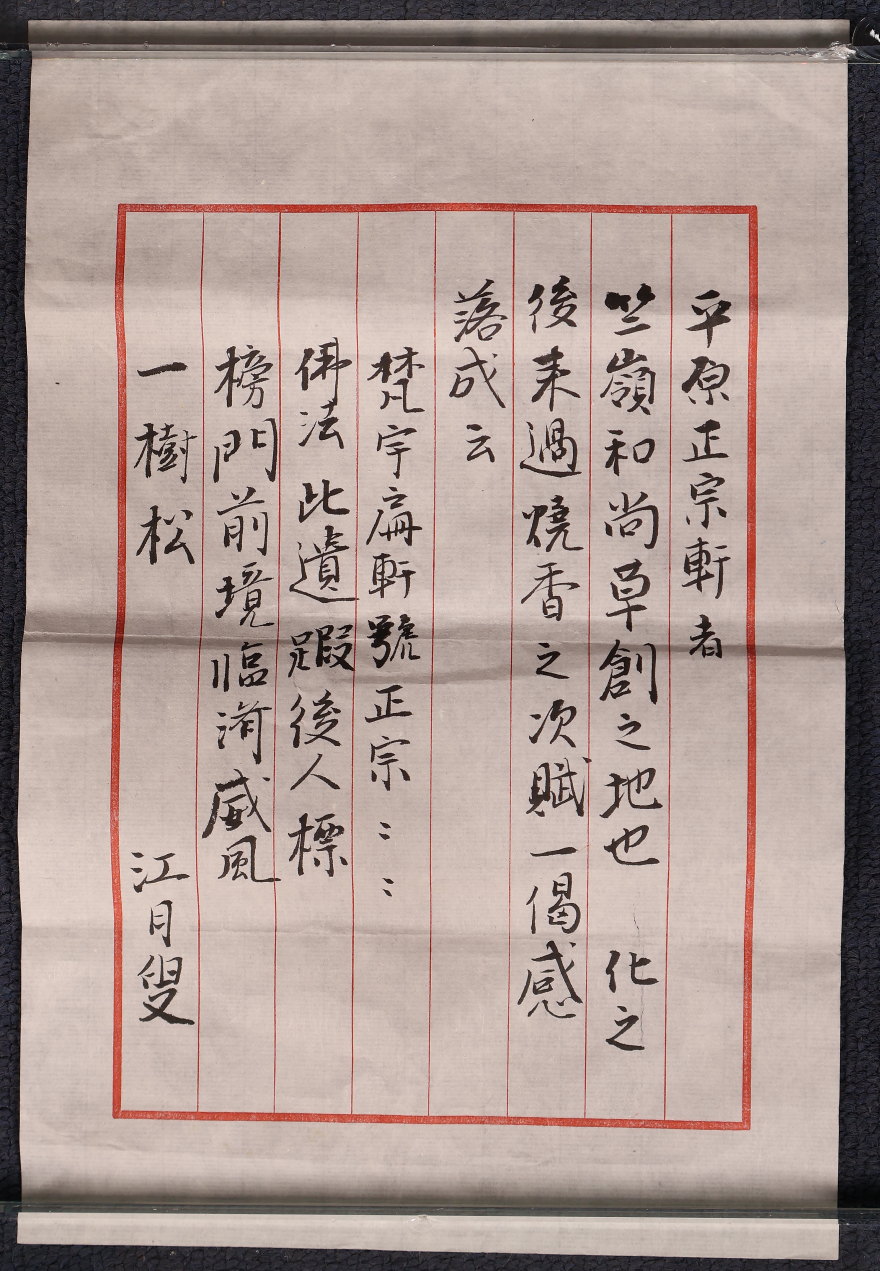 平原正宗軒者
竺嶺和尚草創之地也　化之
後来過燒香之次賦一偈感
落成云
梵宇扁軒號正宗〻〻
佛法此遺蹤後人標
榜門前境臨済威風
一樹松
江月叟